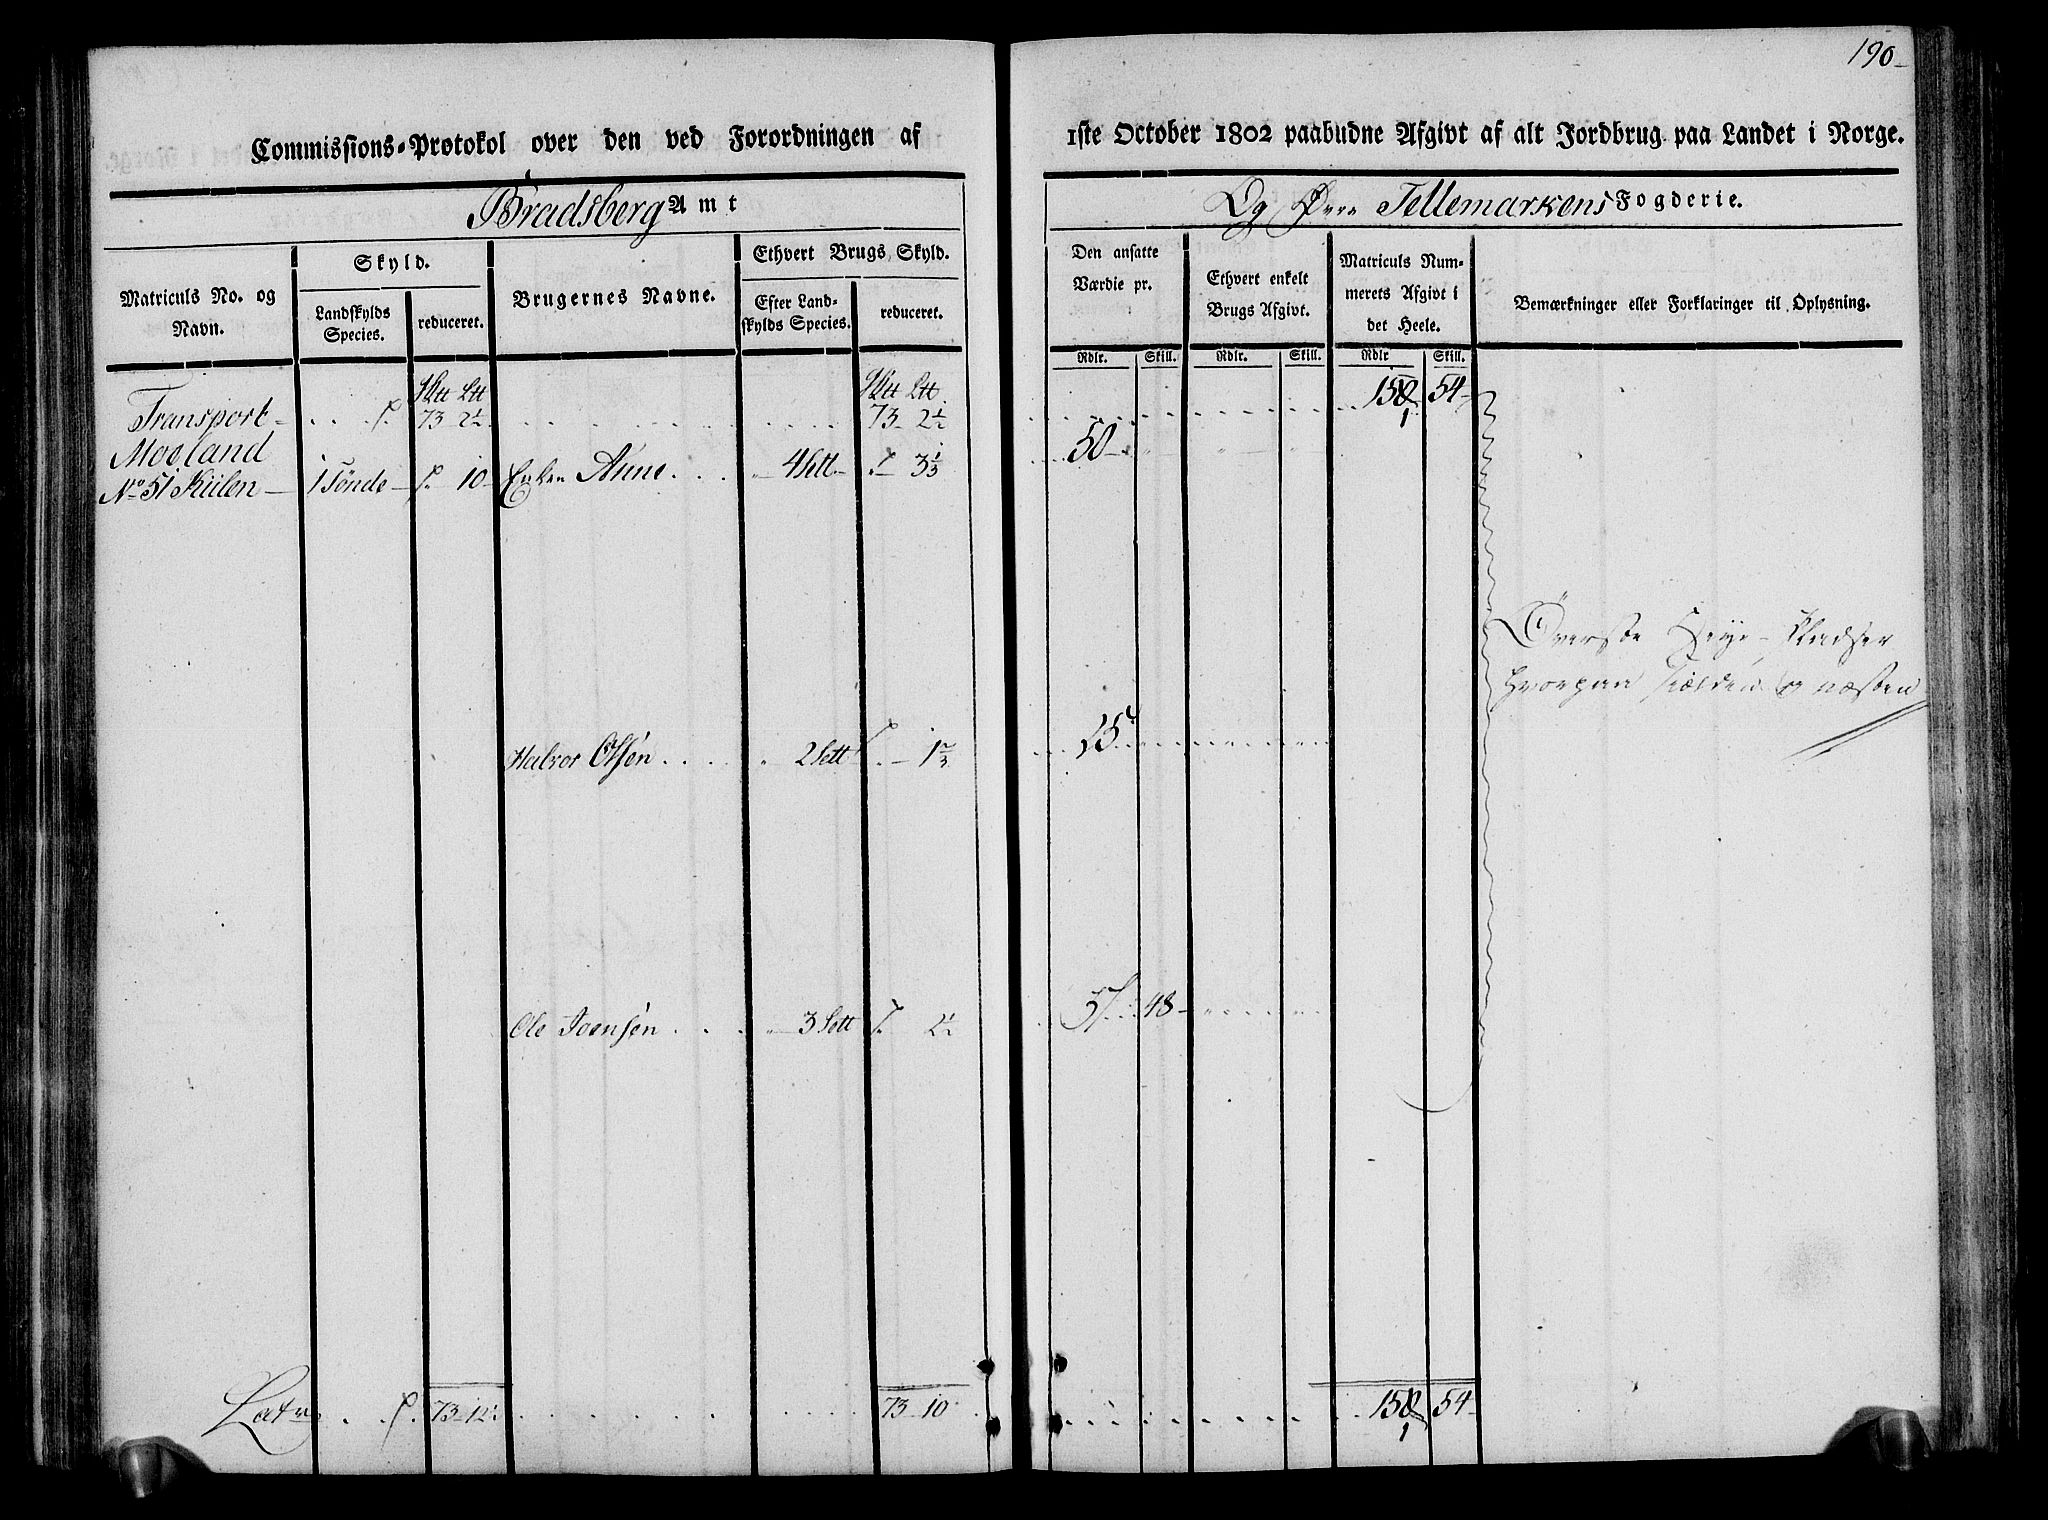 190
Commissions-Protokol over den ved Forordningen af 1ste October 1802 paabudne Afgivt af alt Jordbrug paa Landet i Norge.
Bradsberg Amt
Og Øvre Tellemarkens Fogderie.
Matriculs No. og Navn.
Skyld.
Landskylds Species.
reduceret.
Brugernes Navne.
Ethvert Brugs Skyld.
Efter Landskylds Species.
reduceret.
Den ansatte Værdie pr.
Ethvert enkelt Brugs Afgivt.
Matriculs Nummerets Afgivt i det Heele.
Bemærkninger eller Forklaringer til Oplysning.
Rdlr. Skill. Rdlr. Skill. Rdlr Skill.
Transport 73 2½ 73 2½ 54
Moeland
No 51 Kiilen 1 Tønde 10 Enken Anne 4 Sett 3⅓ 50
Øverste Pladser
hvorpaa og næsten
Halvor Olsen 2 Sett 1⅔ 15
Ole Joensen 3 Sett 2½ 57 48
Latus 73 12½ 73 10 54